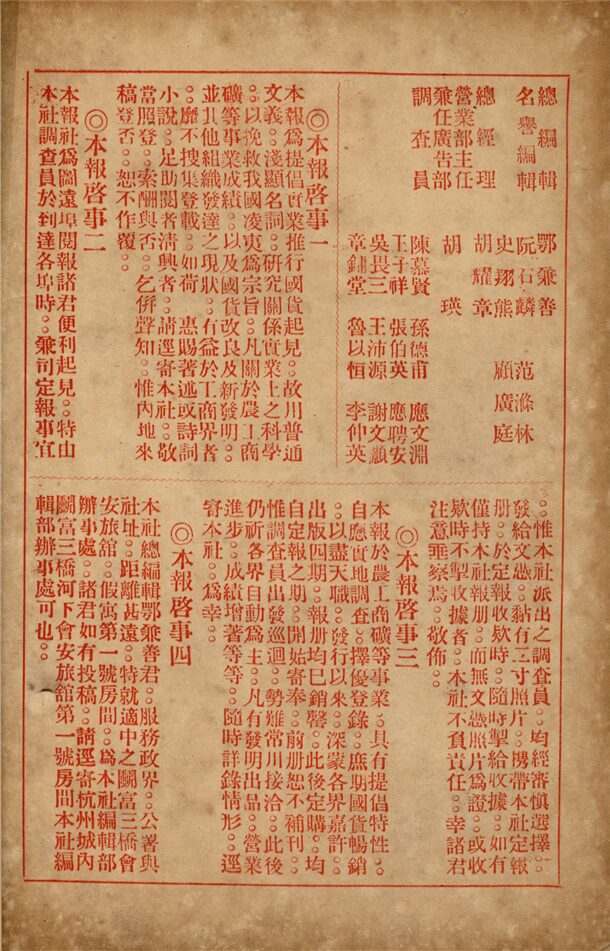 總編輯 鄂兼善
名譽編輯 阮石麟 范滌林
史翔熊 顧廣庭
總經理 胡耀章
營業部主任兼任廣告部 胡瑛
調查員 陳慕賢 孫德甫 應文淵
王子祥 張伯英 應聘安
吳畏三 王沛源 謝文顧
章鏽堂 魯以恒 李仲英
◎本報啓事一
本報爲提倡實業推行國貨起見。故川普通
文義。淺顯名詞。研究關係實業上之科學
。以挽救我國凌夷爲宗旨。凡關於農工商
礦等事業成績。以及國貨改良及新發明。
並其他組織發達之現狀。有益於工商界者
。靡不搜集登載。如荷 惠賜著述或詩詞
小說。足助閱者清興者。請逕寄本社。敬
當照登。索酬與否。乞併聲知。惟內地來
稿登否。恕不作覆。
◎本報啓事二
本報社爲圖遠埠閱報諸君便利起見。特山
本社調查員於到達各埠時。兼司定報事宜
。惟本社派出之調查員。均經審慎選擇。
發給文憑。黏有二寸照片。攜帶本社定報
册。於定報收欵時。隨時掣給收據。如有
僅持本社報册。而無文憑照片爲證。或收
欵時不掣收據者。本社不負責任。幸諸君
注意垂察焉。敬佈。
◎本報啓事三
本報於農工商礦等事業。具有提倡特性。
自應實地調查。擇優登錄。庶期國貨暢銷
。以盡天職。發行以來。深蒙各界嘉許。
出版四期。報册均已銷罄。此後定購。均
自定報之期。開始寄奉。前册恕不補刊。
惟調查員出發巡迴。勢難常川接洽。此後
仍祈各界自動爲主。凡有發明出品。營業
進步。成績增著等等。隨時詳錄情形。逕
寄本社。爲幸。
◎本報啓事四
本社總編輯鄂兼善君。服務政界。公署與
社址。距離甚遠。特就適中之鬭富三橋會
安旅舘。假寓第一號房間。爲本社編輯部
辦事處。諸君如有投稿。請逕寄杭州城內
鬭富三橋河下會安旅舘第一號房間本社編
輯部辦事處可也。